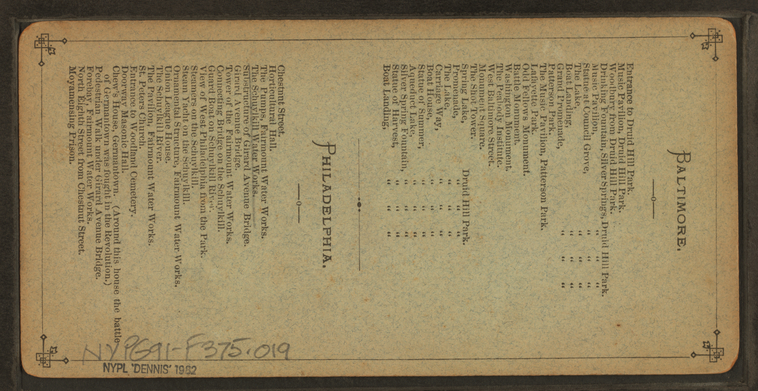 BALTIMORE.
Entrance to Druid Hill Park.
Music Pavilion, Druid Hill Park.
Woodbury, from Druid Hill Park.
Drinking Fountain, Silver Springs, Druid Hill Park.
Music Pavilion, " "
Statue at Council Grove, " "
The Lake, " "
Boat Landing, " "
Grand Promenade, " "
Patterson Park.
The Music Pavilion, Patterson Park.
Lafayette Park.
Odd Fellows Monument.
Battle Monument.
Washington Monument.
The Peabody Institute.
West Baltimore Street.
Monument Square.
The Shot Tower.
Spring Lake, Druid Hill Park.
Promenade, " "
The Lake, " "
Carriage Way, " "
Boat House, " "
Statue of Summer, " "
Aqueduct Lake, " "
Silver Spring Fountain, " "
Statue of Harvest, " "
Boat Landing, " "
PHILADELPHIA.
Chestnut Street.
Horticultural Hall.
The Pumps, Fairmount Water Works.
The Schuylkill Water Works.
Substructure of Girard Avenue Bridge.
Girard Avenue Bridge.
Tower of the Fairmount Water Works.
Connecting Bridge on the Schuylkill.
Guard Boat on Schuylkill River.
View of West Philadelphia from the Park.
Steamers on the Schuylkill.
Steamboats on the Schuylkill.
Ornamental Structure, Fairmount Water Works.
Union League House.
The Schuylkill River.
The Pavilion, Fairmount Water Works.
St. Peters Church.
Entrance to Woodland Cemetery.
Doorway Masonic Hall.
Chew's House, Germantown. (Around this house the battle
of Germantown was fought in the Revolution.)
Pedestrian Walk under Girard Avenue Bridge.
Forebay, Fairmount Water Works.
North Eighth Street from Chestnut Street.
Moyamensing Prison.
NYPG91-F375.019
NYPL "DENNIS" 1982